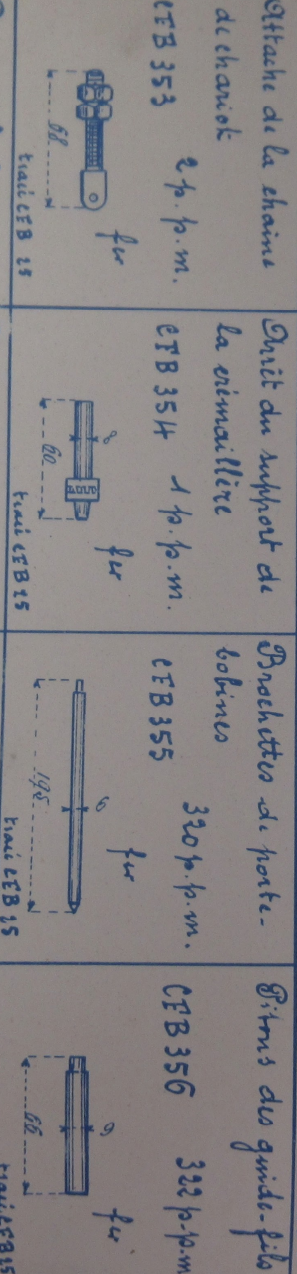 Attache de la chaine
de chariot
CFB 353 2 p.p.m.
fer
68
traii CFB 25
Arrêt du support de
la crémaillère
CFB 354 1 p.p.m.
8
fer
60
traii CFB 25
Brochettes de porte-
bobines
CFB 355 320 p.p.m.
6
fer
195
traii CFB 25
Pitons des guide-fils
CFB 356 322 p.p.m
9
fer
66
traii CFB 25